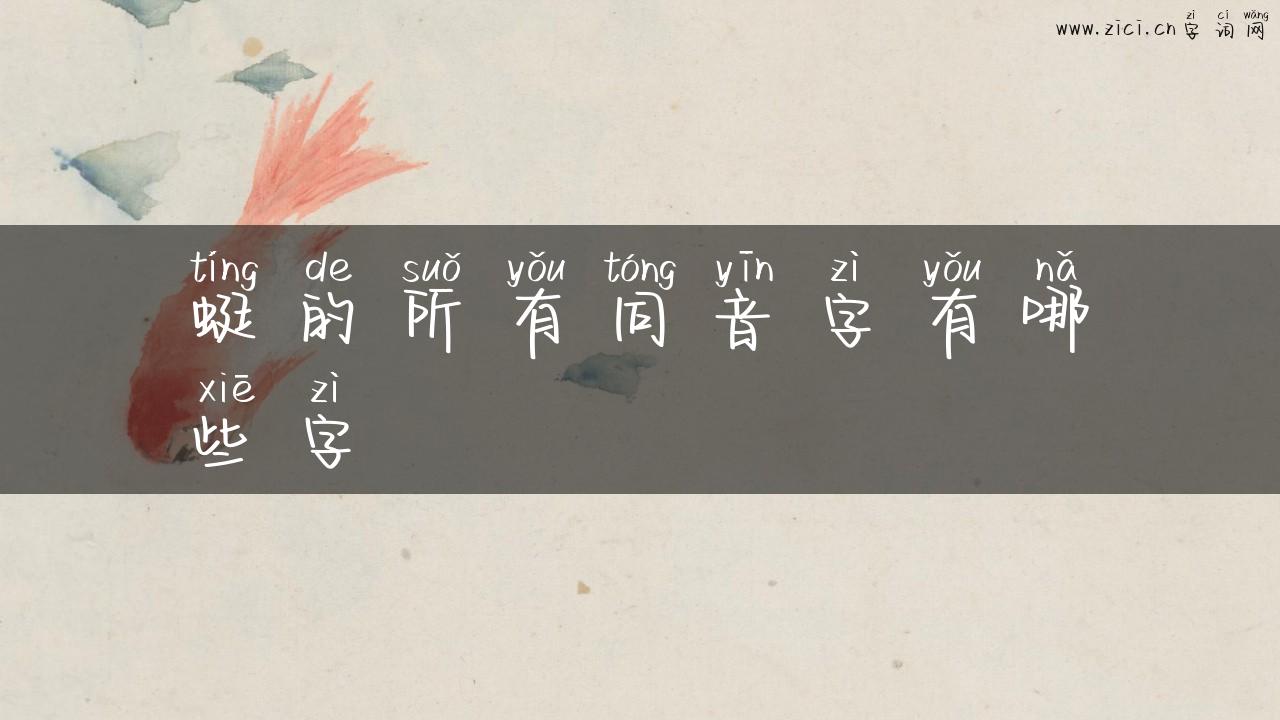 zì cí wǎng
www.zici.cn字词网
tíng de suǒ yǒu tóng yīn zì yǒu nǎ
蜓的所有同音字有哪
xiē zì
些字